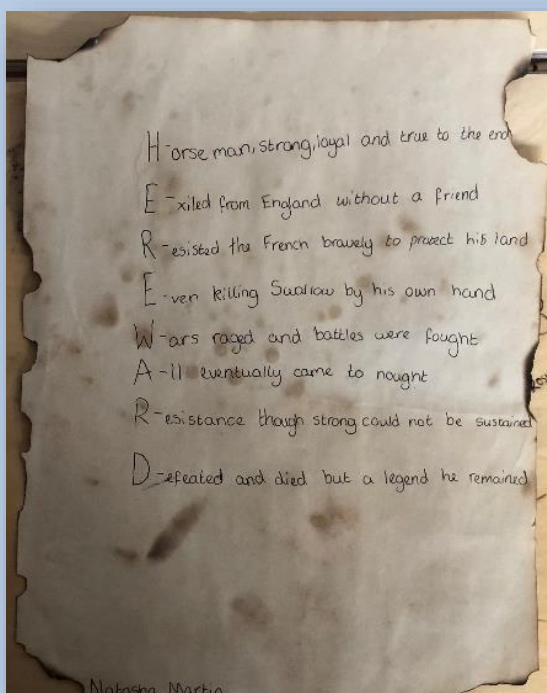 H-orse man, strong, loyal and true to the end
E-xiled from England without a friend
R-esisted the French bravely to protect his land
E-ven killing Swallow by his own hand
W-ars raged and battles were fought
A-ll eventually came to nought
R-esistance though strong could not be sustained
D-efeated and died but a legend he remained
Natasha Martin